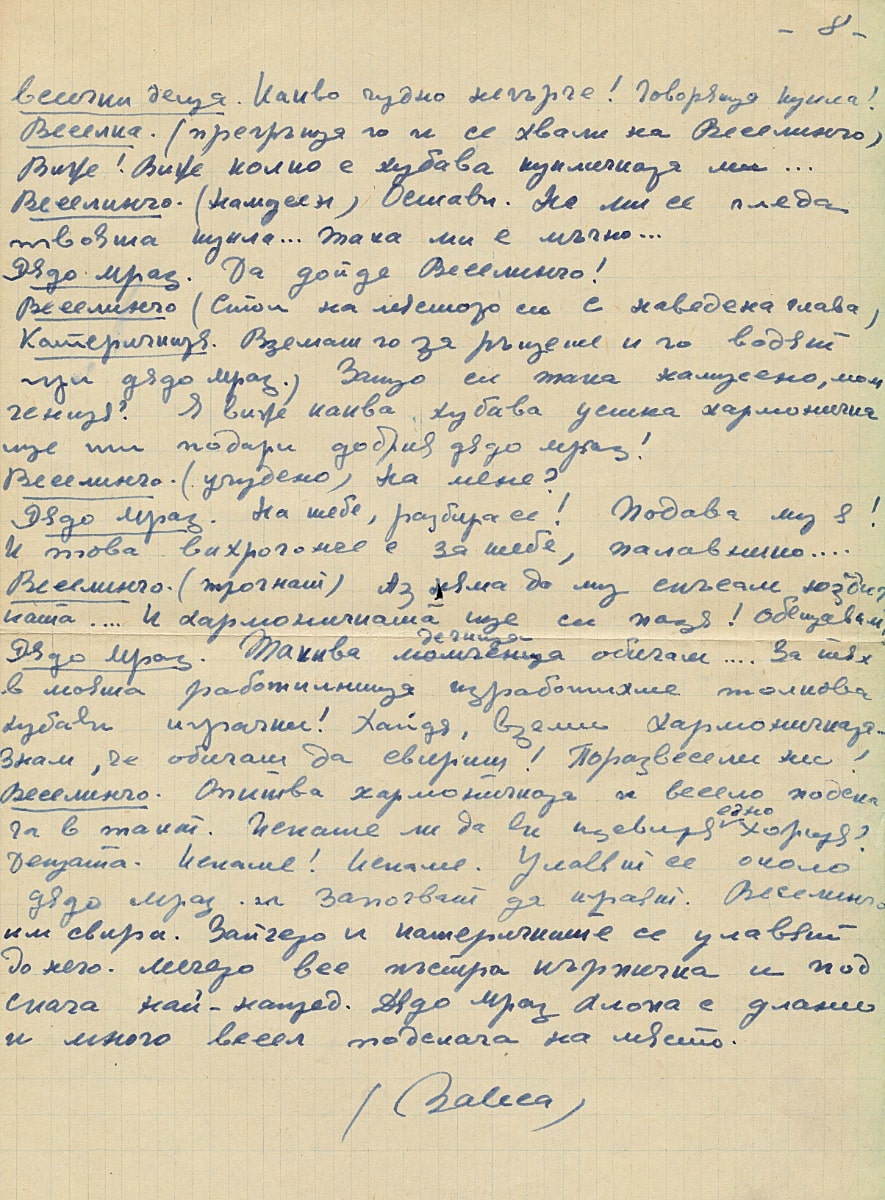 - 8 -
всички деца. Какво чудно негърче! Говоряща кукла!
Веселка. (прегръща го и се хвали на Веселинчо)
Виж! Виж колко е хубава кукличката ми ...
Веселинчо. (намусен) Остави. Не ми се гледа
твоята кукла... Така ми е мъчно...
Дядо Мраз. Да дойде Веселинчо!
Веселинчо (Стои на мястото си с наведена глава,
Катеричкитя. Вземат го за ръцете и го водят
при дядо Мраз.) Защо си така намусено, мом
ченця? Я виж каква хубава устна хармоничка
ще ти подари добрия дядо мраз!
Веселинчо. (учудено) На мене?
Дядо Мраз. На тебе, разбира се! Подава му я!
И това вихрогонче е за тебе, палавнико....
Веселинчо. (трогнат) Аз няма да му скъсам юздич
ката .... И хармоничката ще си пазя! Обещавам!
дечица
Дядо Мраз. Такива момченца обичам .... За тях
в моята работилница изработихме толкова
хубави играчки! Хайде, вземи хармоничката.
Знам, че обичаш да свириш! Поразвесели ни!
Веселинчо. Опитва хармоничката и весело подска
ча в такт. Искате ли да ви изсвиря едно хорце?
Децата. Искаме! Искаме. Улавят се около
дядо Мраз и започват да играят. Веселинчо
им свири. Зайчето и катеричките се улавят
до него. Мечето вее пъстра кърпичка и под
скача най-напред. Дядо Мраз клопа с длани
и много весел подскача на място.
(Завеса)